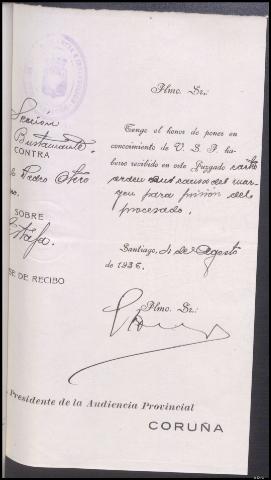 Ylmo. Sr.:
Sección
Bustamante.
CONTRA
Pedro Otero
SOBRE
Estafa.
SE DE RECIBO
Tengo el honor de poner en
conocimiento de V. S. I. ha-
berse recibido en este Juzgado carta
orden causa del mar-
gen para prisión del
procesado.
Santiago, de Agosto
de 1936.
Ylmo. Sr.:
Presidente de la Audiencia Provincial
CORUÑA